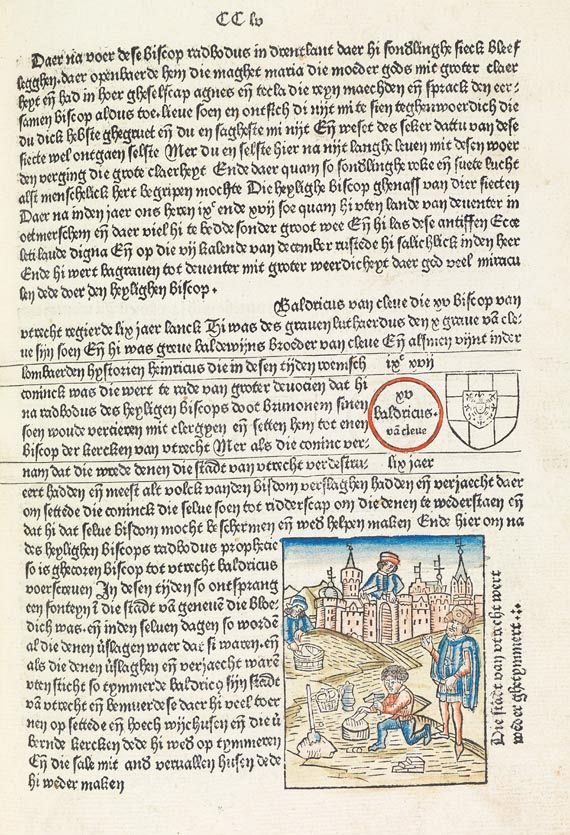 CC lv
Daer na voer dese biscop radbodus in drentlant daer hi sonðlinghe sieck bleef
legghen. daer openbaerde hem die maghet maria die moeder gods mit groter claer
heyt eñ had in hoer ghselscap agnes eñ tecla die reyn maechden eñ sprack den eer-
samen biscop aldus toe. lieue soen en ontsich di nijt mi te sien teghenwoerdich die
du dick hebste ghegruet eñ du en sagheste mi nijt Eñ weset des seker dattu van dese
siecte wel ontgaen selste Mer du en selste hier na nijt langhe leuen mit desen woer
den verging die grote claerheyt Ende daer quam so sonðlinghen roke eñ suete lucht
alst menschelick hert begripen mochte Die heylighe biscop ghenass van dier siecten
Daer na inden jaer ons heren ixᶜ ende xvij soe quam hi vten lande van deuenter in
oetmerschem eñ daer viel hi te bedde sonder groot wee Eñ hi las dese antiffen Ecce
leti laude digna Eñ op die vij kalende van december rustede hi salichlick inden heer
Ende hi wert bagrauen tot deuenter mit groter weerdicheyt daer god veel miracu
len dede doer den heylighen biscop.
Baldricus van cleue die xv biscop van
vtrecht regierde lix jaer lanck Hi was des grauen luthardus den x graue vã cle-
ue sijn soen Eñ hi was greue baldewijns broeder van cleue Eñ alsmen vijnt inder
lombaerden hystorien heinricus die in desen tijden roemsch
coninck was die wert te rade van groter deuocien dat hi
na radbodus des heyligen biscops doot brunonem sinen
soen woude vercieren mit clergyen eñ setten hem tot enen
biscop der kercken van vtrecht Mer als die coninc ver-
nam dat die wrede denen die stadt van vtrecht verdestru-
ixᶜ xvij
xv
baldricus.
vã cleue
lix jaer
eert hadden eñ meest alt volck vanden bisdom verslaghen hadden eñ verjaecht daer
om settede die coninck die selue soen tot ridderscap om die denen te wederstaen eñ
dat hi dat selue bisdom mocht beschermen eñ weð helpen maken Ende hier om na
des heylighen biscops radbodus prophecie
so is ghecoren biscop tot vtrecht baldricus
voerscreuen In desen tijden so ontsprang
een fonteyn ĩ die stadt vã geneuen die bloe-
dich was. eñ inden seluen dagen so worden
al die denen ũslagen waer dat si waren. eñ
als die denen ũslaghen eñ verjaecht waren
vten sticht so tymmerde baldricꝯ sijn stadt
vã vtrecht eñ bemuerdese daer hi veel toer
nen op settede eñ hoech wijchusen eñ die ũ
bernde kercken dede hi weð op tymmeren
Eñ die sale mit anð veruallen husen dede
hi weder maken
Die stadt van vtrecht wert
weder ghetymmert.